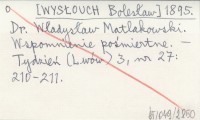 [WYSŁOUCH Bolesław] 1895.
Dr. Władysław Matlakowski.
Wspomnienie pośmiertne. –
Tydzień (Lwów) 3, nr 27:
210-211.